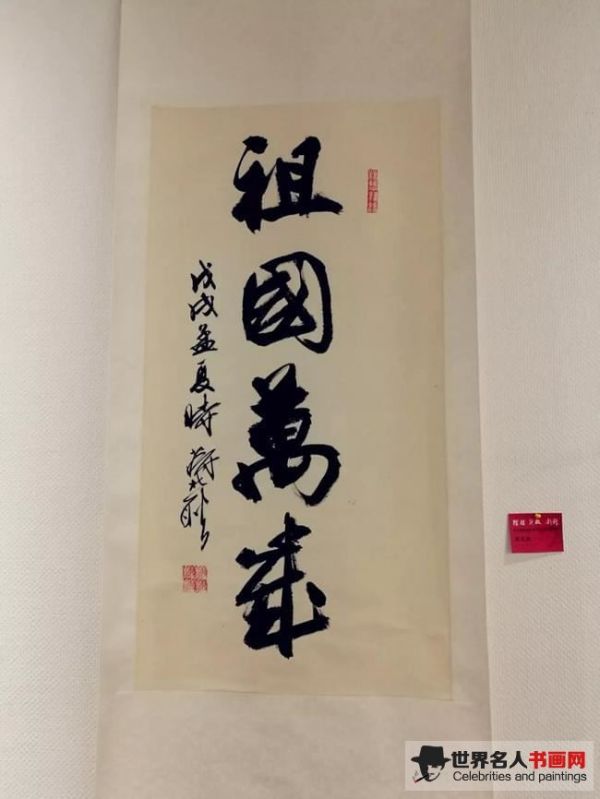 祖國萬歲
戊戌孟夏時
世界名人书画网
Celebrities and paintings